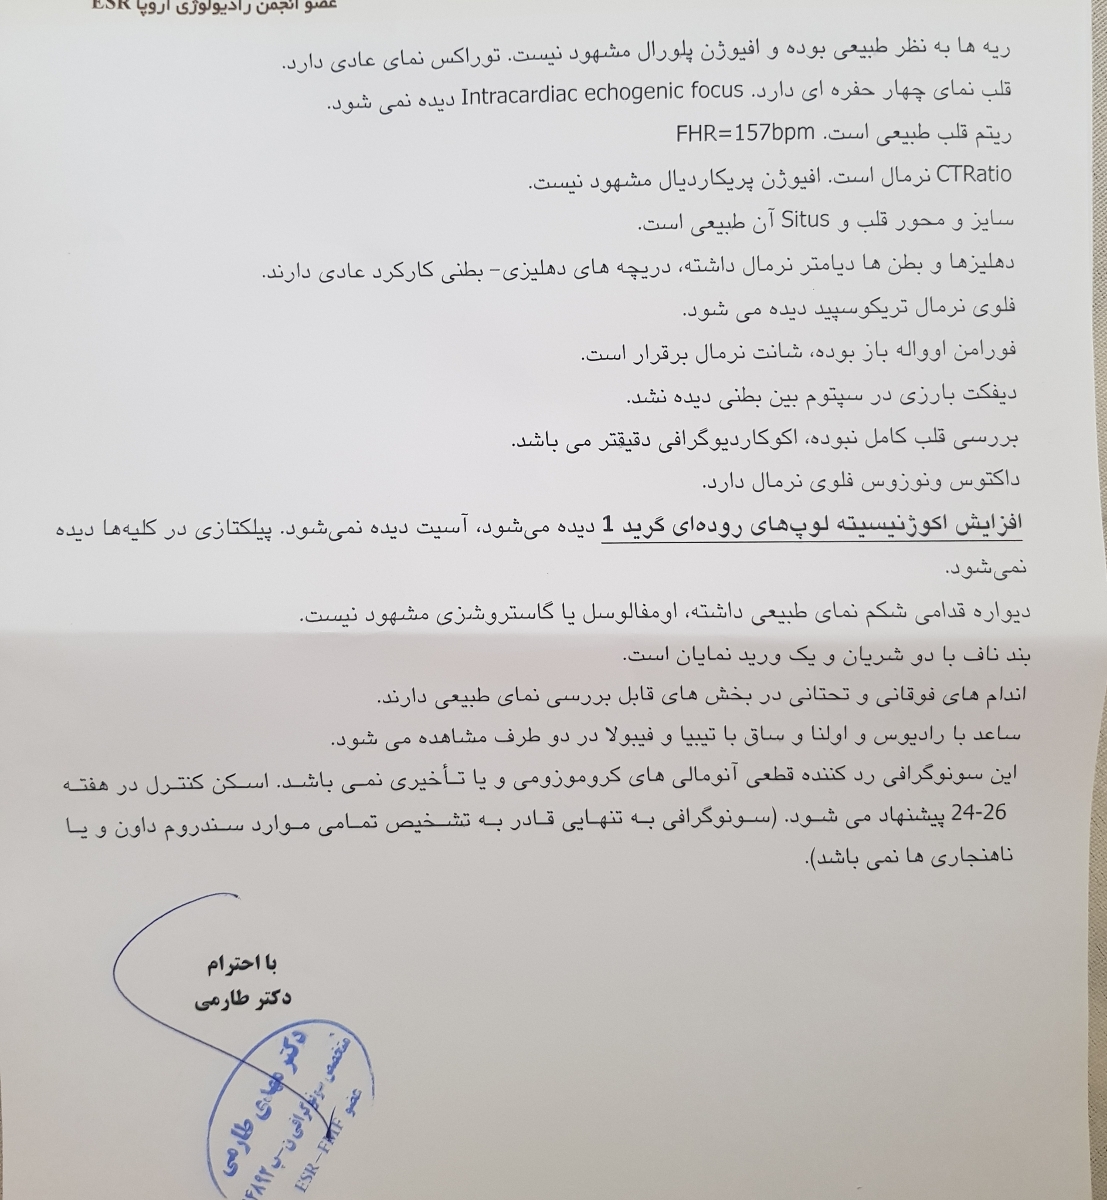 عضو انجمن رادیولوژی اروپا ESR
ریه ها به نظر طبیعی بوده و افیوژن پلورال مشهود نیست. توراکس نمای عادی دارد.
قلب نمای چهار حفره ای دارد. Intracardiac echogenic focus دیده نمی شود.
ریتم قلب طبیعی است. FHR=157bpm
CTRatio نرمال است. افیوژن پریکاردیال مشهود نیست.
سایز و محور قلب و Situs آن طبیعی است.
دهلیزها و بطن ها دیامتر نرمال داشته، دریچه های دهلیزی- بطنی کارکرد عادی دارند.
فلوی نرمال تریکوسپید دیده می شود.
فورامن اوواله باز بوده، شانت نرمال برقرار است.
دیفکت بارزی در سپتوم بین بطنی دیده نشد.
بررسی قلب کامل نبوده، اکوکاردیوگرافی دقیقتر می باشد.
داکتوس ونوزوس فلوی نرمال دارد.
افزایش اکوژنیسیته لوپ‌های روده‌ای گرید 1 دیده می‌شود، آسیت دیده نمی‌شود. پیلکتازی در کلیه‌ها دیده
نمی‌شود.
دیواره قدامی شکم نمای طبیعی داشته، اومفالوسل یا گاستروشزی مشهود نیست.
بند ناف با دو شریان و یک ورید نمایان است.
اندام های فوقانی و تحتانی در بخش های قابل بررسی نمای طبیعی دارند.
ساعد با رادیوس و اولنا و ساق با تیبیا و فیبولا در دو طرف مشاهده می شود.
این سونوگرافی رد کننده قطعی آنومالی های کروموزومی و یا تأخیری نمی باشد. اسکن کنترل در هفته
24-26 پیشنهاد می شود. (سونوگرافی به تنهایی قادر به تشخیص تمامی موارد سندروم داون و یا
ناهنجاری ها نمی باشد).
با احترام
دکتر طارمی
دکتر مهدی طارمی
متخصص سونوگرافی ن-پ
عضو ESR-FMF